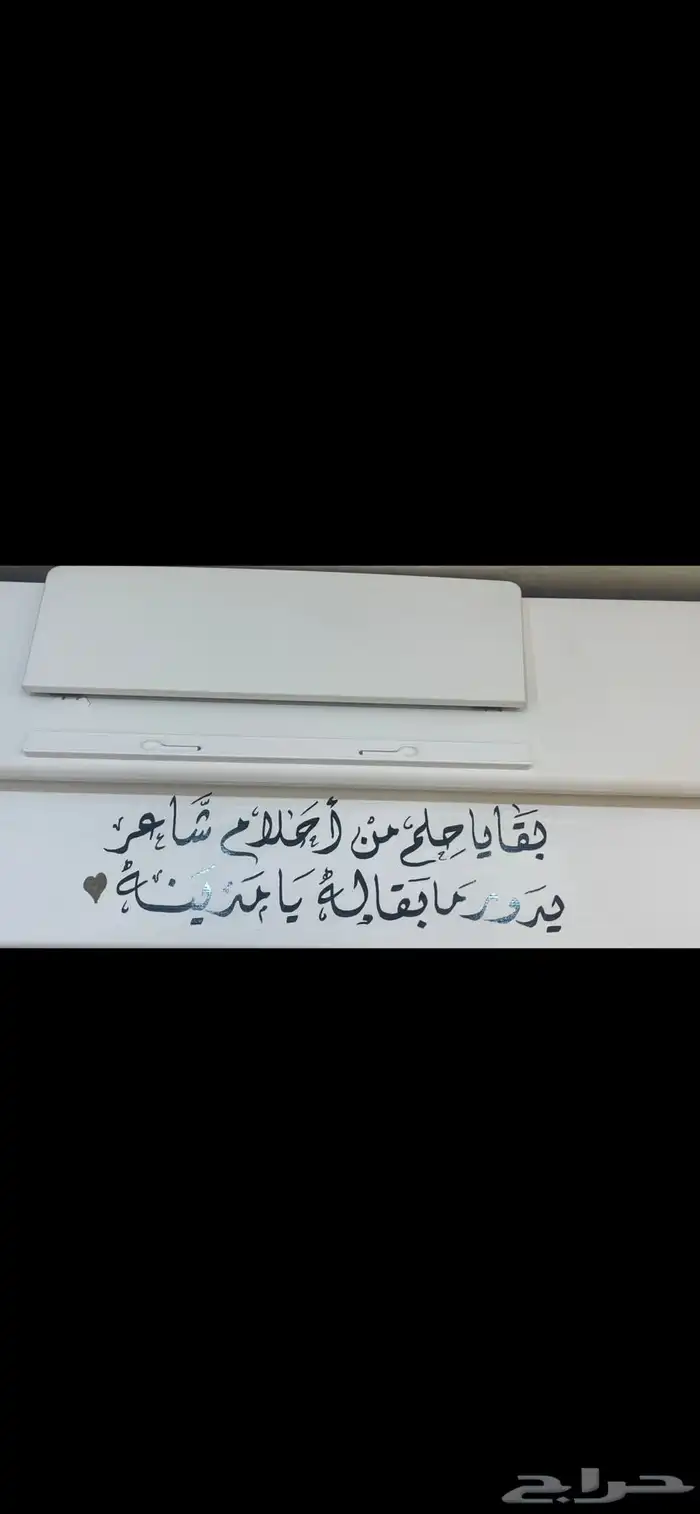 بَقَايا حِلم من أَحَلام شَّاعر
يدَور مَا بَقالهُ يَا مَدَينهُ
حراج